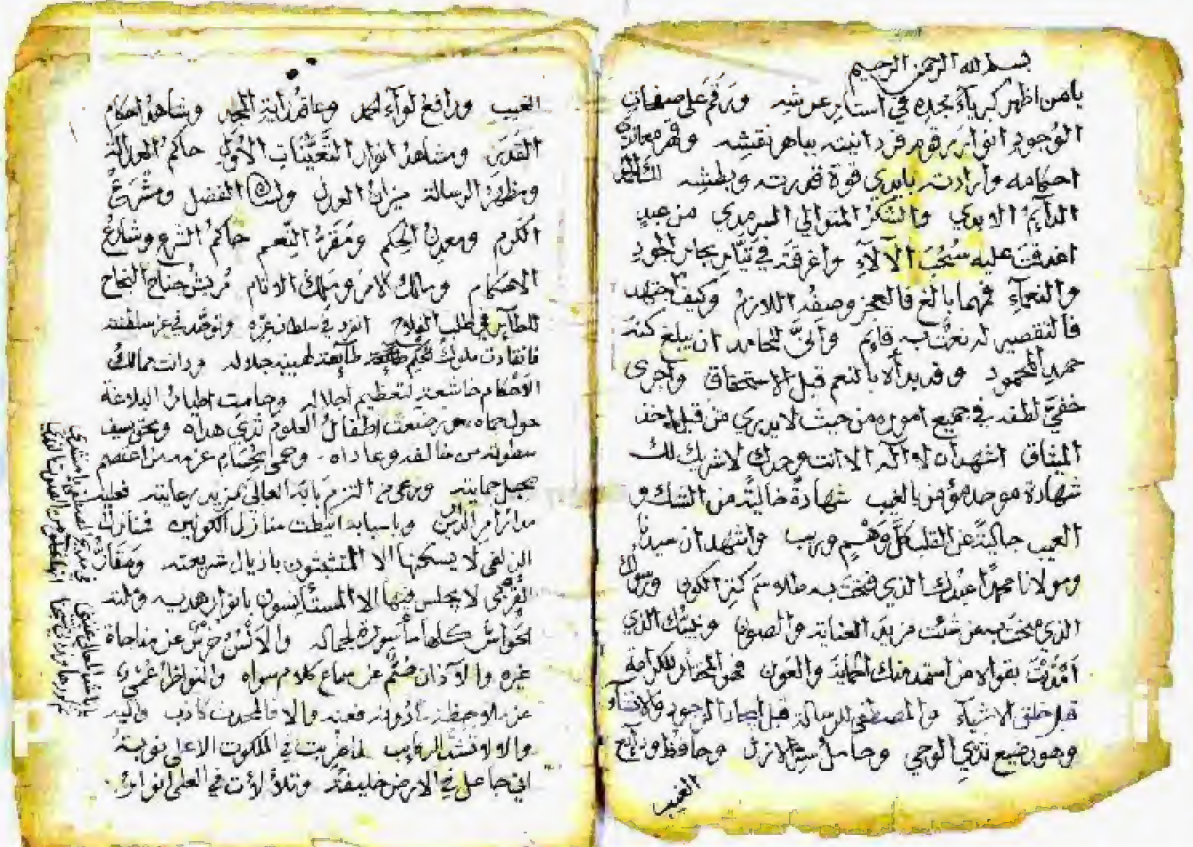 بسم الله الرحمن الرحيم
يا من اظهر كبرياء مجده في استاير عرشه ورقم على صفحات
الوجود انوار برقوم فردانيته بباهر نقشه وقهر معاندي
احكامه وارادته بايدي قوة قهره وبطشه لك الحمد
الدايم الابدي والشكر المتوالي السرمدي من عبد
اغدقت عليه سحب الآلاء واغرقته في تيار بحار الجود
والنعماء فمهما بالغ فالعجز وصفه اللازم وكيف اجتهد
فالتقصير له نعت به قايم وأنى للحامد ان يبلغ كنه
حمد المحمود وقد بدأه بالنعم قبل الاستحقاق واجرى
خفي لطفه في جميع اموره من حيث لا يدري من قبل اخذ
الميثاق اشهد ان لا اله الا انت وحدك لا شريك لك
شهادة موحد مؤمن بالغيب شهادة خالية من الشك و
العيب جالية عن القلب كل وهم وريب واشهد ان سيدنا
ومولانا محمدا عبدك الذي فتحت به طلاسم كنز الكون ورسولك
الذي منحت به من شئت مزيد العناية والصون ونبيك الذي
امددت بقواه من استمد منك الحماية والعون فهو المختار للكرامة
قبل خلق الاشياء والمصطفى للرسالة قبل ايجاد الوجود والانشاء
وهو رضيع ثدي الوحي وحامل سر الازل وحافظ ودايع
الغيب
الغيب ورافع لواء الحمد وعاقد راية المجد وشاهد احكام
القدس ومشاهد انوار التعينات الاول حاكم العدالة
ومظهر الرسالة ميزان العدل ولسان الفضل ومشرع
الكرم ومعدن الحكم ومقر النعم حاكم الشرع وشارع
الاحكام ومالك الامر وملك الانام مريش جناح النجاح
للطاير في طلب الفلاح انفرد في سلطان عزه وتوحد في عز سلطنته
فانقادت ملوك الحكم طايعة لهيبة جلاله ودانت ممالك
الاحكام خاشعة لتعظيم اجلاله وحامت اطيار البلاغة
حول حماه حتى رضعت اطفال العلوم ثدي هداه ومحق بسيف
سطوته من خالفه وعاداه وحمى عزمه من اعتصم
بجميل حمايته ورعى من التزم بابه العالي بمزيد رعايته فعليه
مدار امر الدين وباسبابه انيطت منازل الكونين فمنازل
الزلفى لا يسكنها الا المتشبثون باذيال شريعته ومقاعد
القربى لا يجلس فيها الا المستأنسون بانوار هديه
الحواس كلها مأسورة لجماله والالسن خرس عن مناجاة
غيره والآذان صم عن سماع كلام سواه والنواظر عمي
عن ملاحظة والا فالمحدث كاذب
والا لما ضربت في الملكوت الاعلى نوبة
اني جاعل في الارض خليفة وتلألأت في العلى انواره